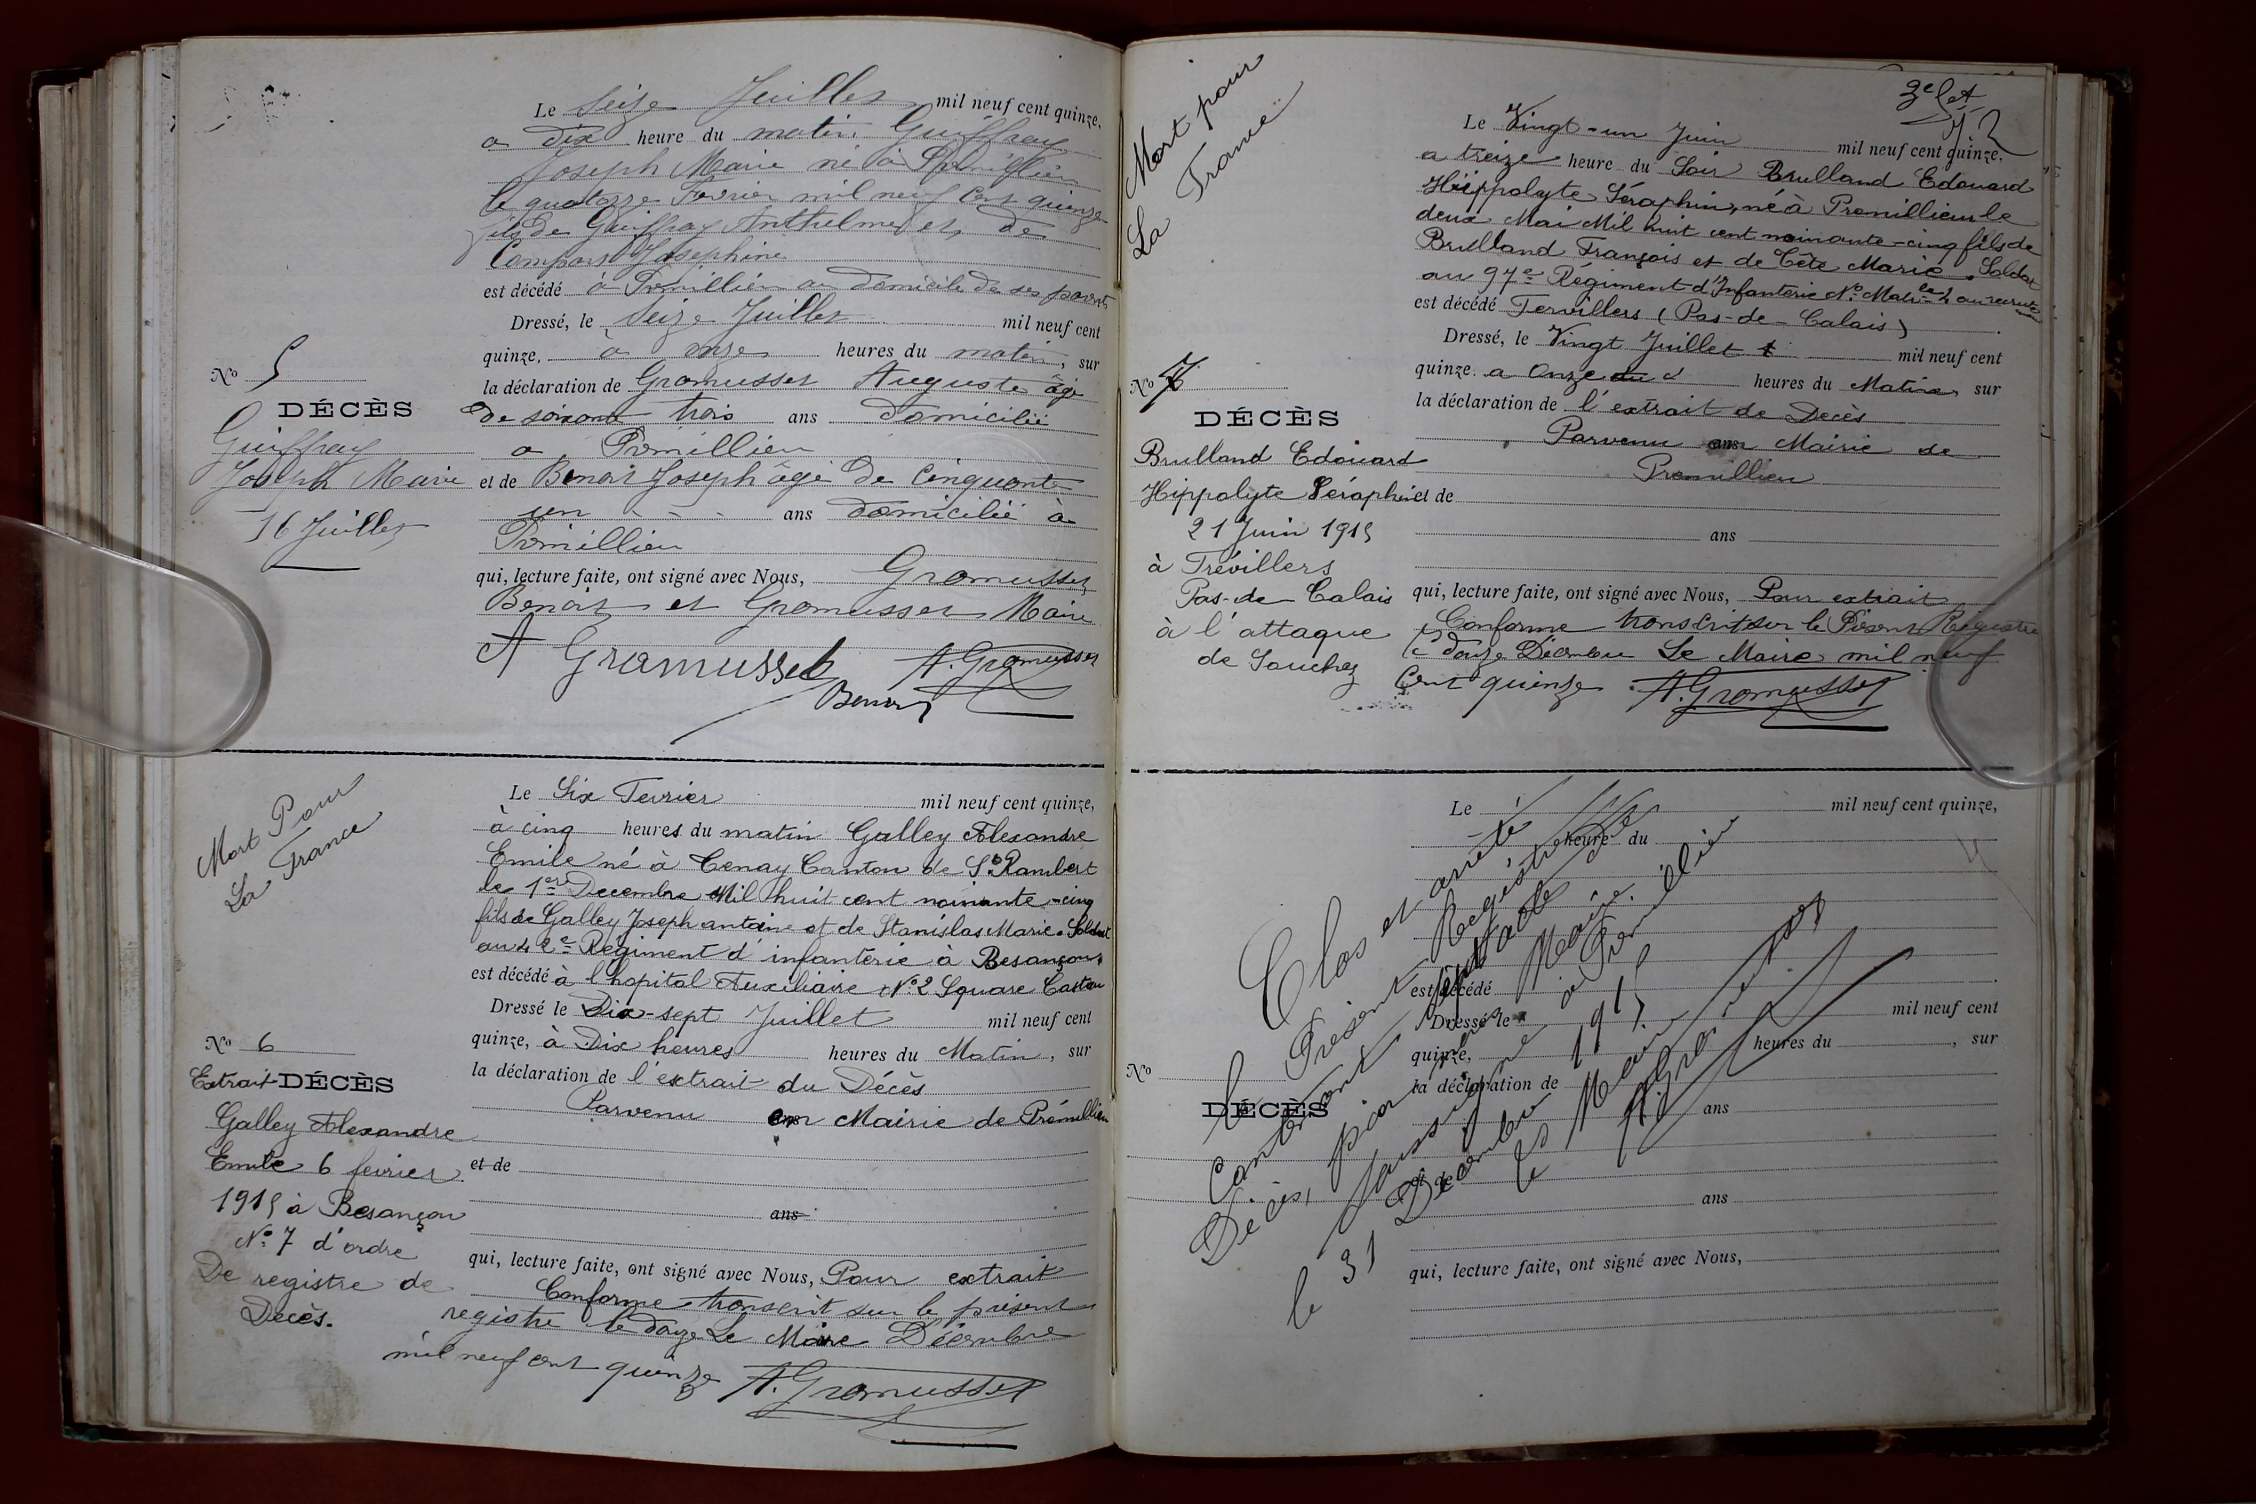 Le Seize Juillet mil neuf cent quinze,
a dix heure du matin Guiffray
Joseph Marie né à Prémillieu
le quatorze Fevrier mil neuf cent quinze
fils de Guiffray Anthelme et de
Josephine
est décédé à Prémillieu au domicile de ses parents
Dressé, le Seize Juillet mil neuf cent
quinze, à onze heures du matin, sur
la déclaration de Gromusset Auguste âgé
de soixant trois ans domicilié
a Prémillieu
et de Benoit Joseph âgé de Cinquante
un - - - ans domicilié à
Prémillieu
qui, lecture faite, ont signé avec Nous, Gromusset
Benoit et Gromusset Maire
A Gramusset A. Gromusset
Benoit
No 5
DÉCÈS
Guiffray
Joseph Marie
16 Juillet
Mort Pour
La France
Le Six Fevrier mil neuf cent quinze,
à cinq heures du matin Galley Alexandre
Emile né à Tenay Canton de St Rambert
le 1er Decembre Mil huit cent noinante-cinq
fils de Galley Joseph antoine et de Stanislas Marie. Soldat
au 42e Regiment d'infanterie à Besançon
est décédé à l'hopital Auxiliaire No 2 Square Castan
Dressé le Dix-sept Juillet mil neuf cent
quinze, à Dix heures heures du Matin, sur
la déclaration de l'extrait du Décès
Parvenu en Mairie de Prémillieu
et de
ans
qui, lecture faite, ont signé avec Nous, Pour extrait
Conforme transcrit sur le présent
registre le douze Le Maire Décembre
mil neuf cent quinze A. Gromusset
No 6
Extrait DÉCÈS
Galley Alexandre
Emile 6 fevrier
1915 à Besançon
No 7 d'ordre
De registre de
Decès.
Mort pour
La France
Le Vingt-un Juin mil neuf cent quinze.
a treize heure du Soir Brulland Edouard
Hippolyte Séraphin, né à Premillieu le
deux Mai Mil huit cent noinante-cinq fils de
Brulland François et de Tête Marie. Soldat
au 97e Régiment d'Infanterie No Matr
est décédé Tervillers (Pas-de-Calais)
Dressé, le Vingt Juillet mil neuf cent
quinze. a Onze heures du Matin, sur
la déclaration de l'extrait de Decès
Parvenu en Mairie de
Premillieu
et de
ans
qui, lecture faite, ont signé avec Nous, Pour extrait
Conforme transcrit sur le Présent Registre
le douze Décembre Le Maire mil neuf
Cent quinze A. Gromusset
No 7
DÉCÈS
Brulland Edouard
Hippolyte Séraphin
21 Juin 1915
à Trévillers
Pas-de Calais
à l'attaque
de Souchez
Le mil neuf cent quinze,
heure du
est décédé
Dressé le mil neuf cent
quinze, heures du , sur
la déclaration de
ans
et de
ans
qui, lecture faite, ont signé avec Nous,
No
DÉCÈS
Clos et arrêté
le Présent Registre
Contenant sept actes de
Décès, par nous Maire
soussigné à Prémillieu
le 31 Décembre 1915
Le Maire
A. Gromusset